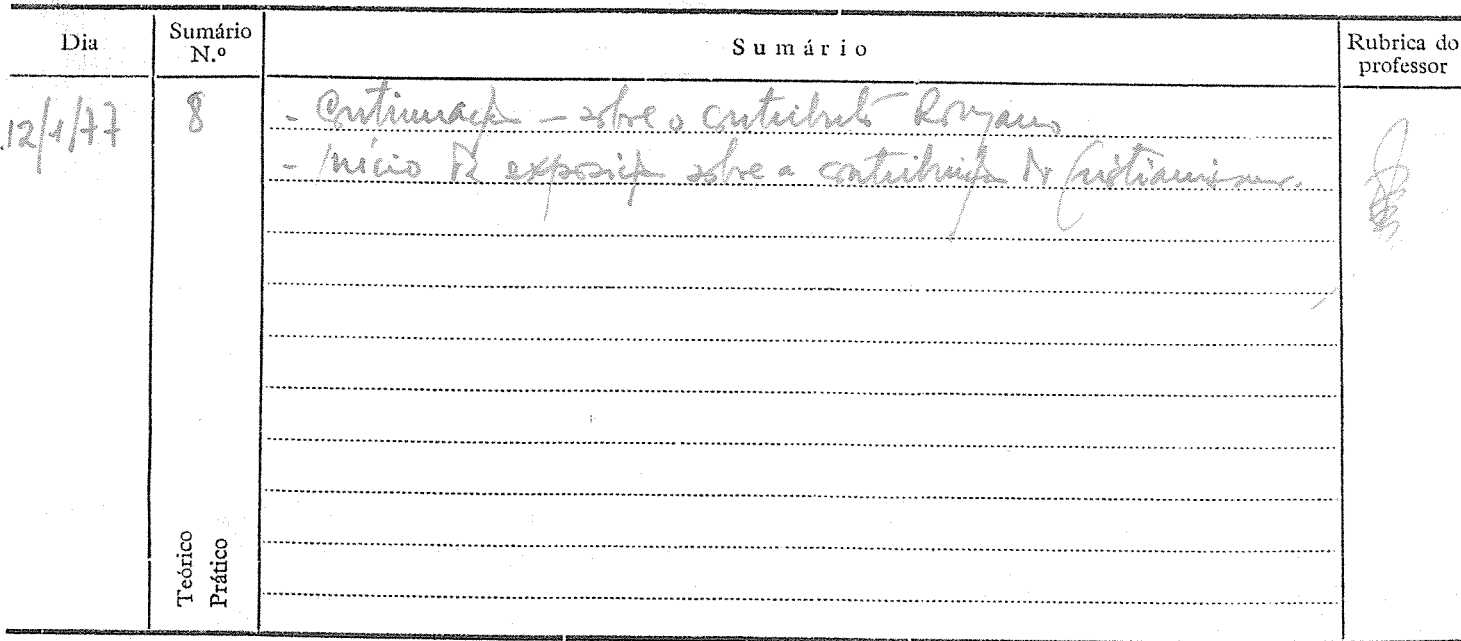 Dia Sumário N.º Sumário Rubrica do professor
12/1/77 8 - Continuação - sobre o contributo Romano
- Início da exposição sobre a contribuição do Cristianismo.
Teórico
Prático